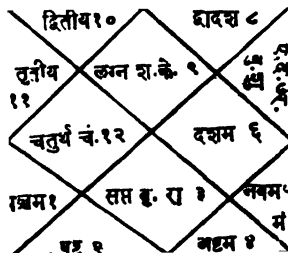 द्वितीय१० द्वादश ८
तृतीय लग्न श.के. ९
११
चतुर्थ चं.१२ दशम ६
पञ्चम१ सप्त बु. रा ३ नवम५
मं
षष्ठ २ अष्टम ४